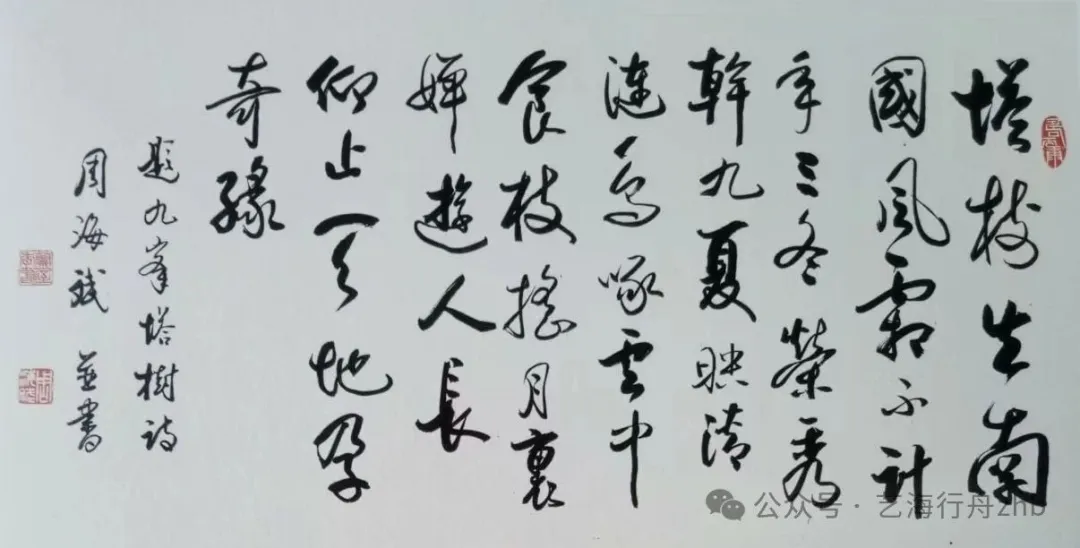 塔树生南
國風霜不計
年三冬榮秀
幹九夏映清
漣鳥啄云中
食枝搖月裏
嬋遊人長
仰止天地孕
奇緣
題九峯塔樹詩
周海斌 並書
公众号 · 艺海行舟zhb